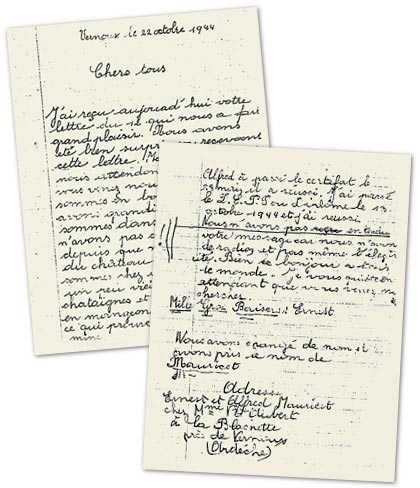 Vernoux, le 22 octobre 1944
Chers tous
J'ai reçu aujourd'hui votre
lettre du 12 qui nous a fait
grand plaisir. Nous avons
été bien surpris en recevant
cette lettre.
nous attendon
vous venez nou
sommes en bo
avons grandi
sommes dans
n'avons pas
depuis que
du château
sommes chez
un peu
chataignes et
en mangeons
ce qui prouve
mine
Alfred à passé le certifat le
23 mai et a réussi. J'ai passé
le
octobre 1944 et j'ai reussi.
Nous n'avons pas reçu en
votre message car nous n'avon
de radios et pas même l'élect
cité. Bien le bonjour à tous
le monde. Je vous quitte en
attendant que vous venez n
chercher.
Mille Gros Baisers: Ernest
Nous avons changé de nom et
avons pris le nom de
Mauricet
Adresse
Ernest et Alfred Mauricet
chez Mme
à la Blachette
près de Vernoux
(Ardèche)